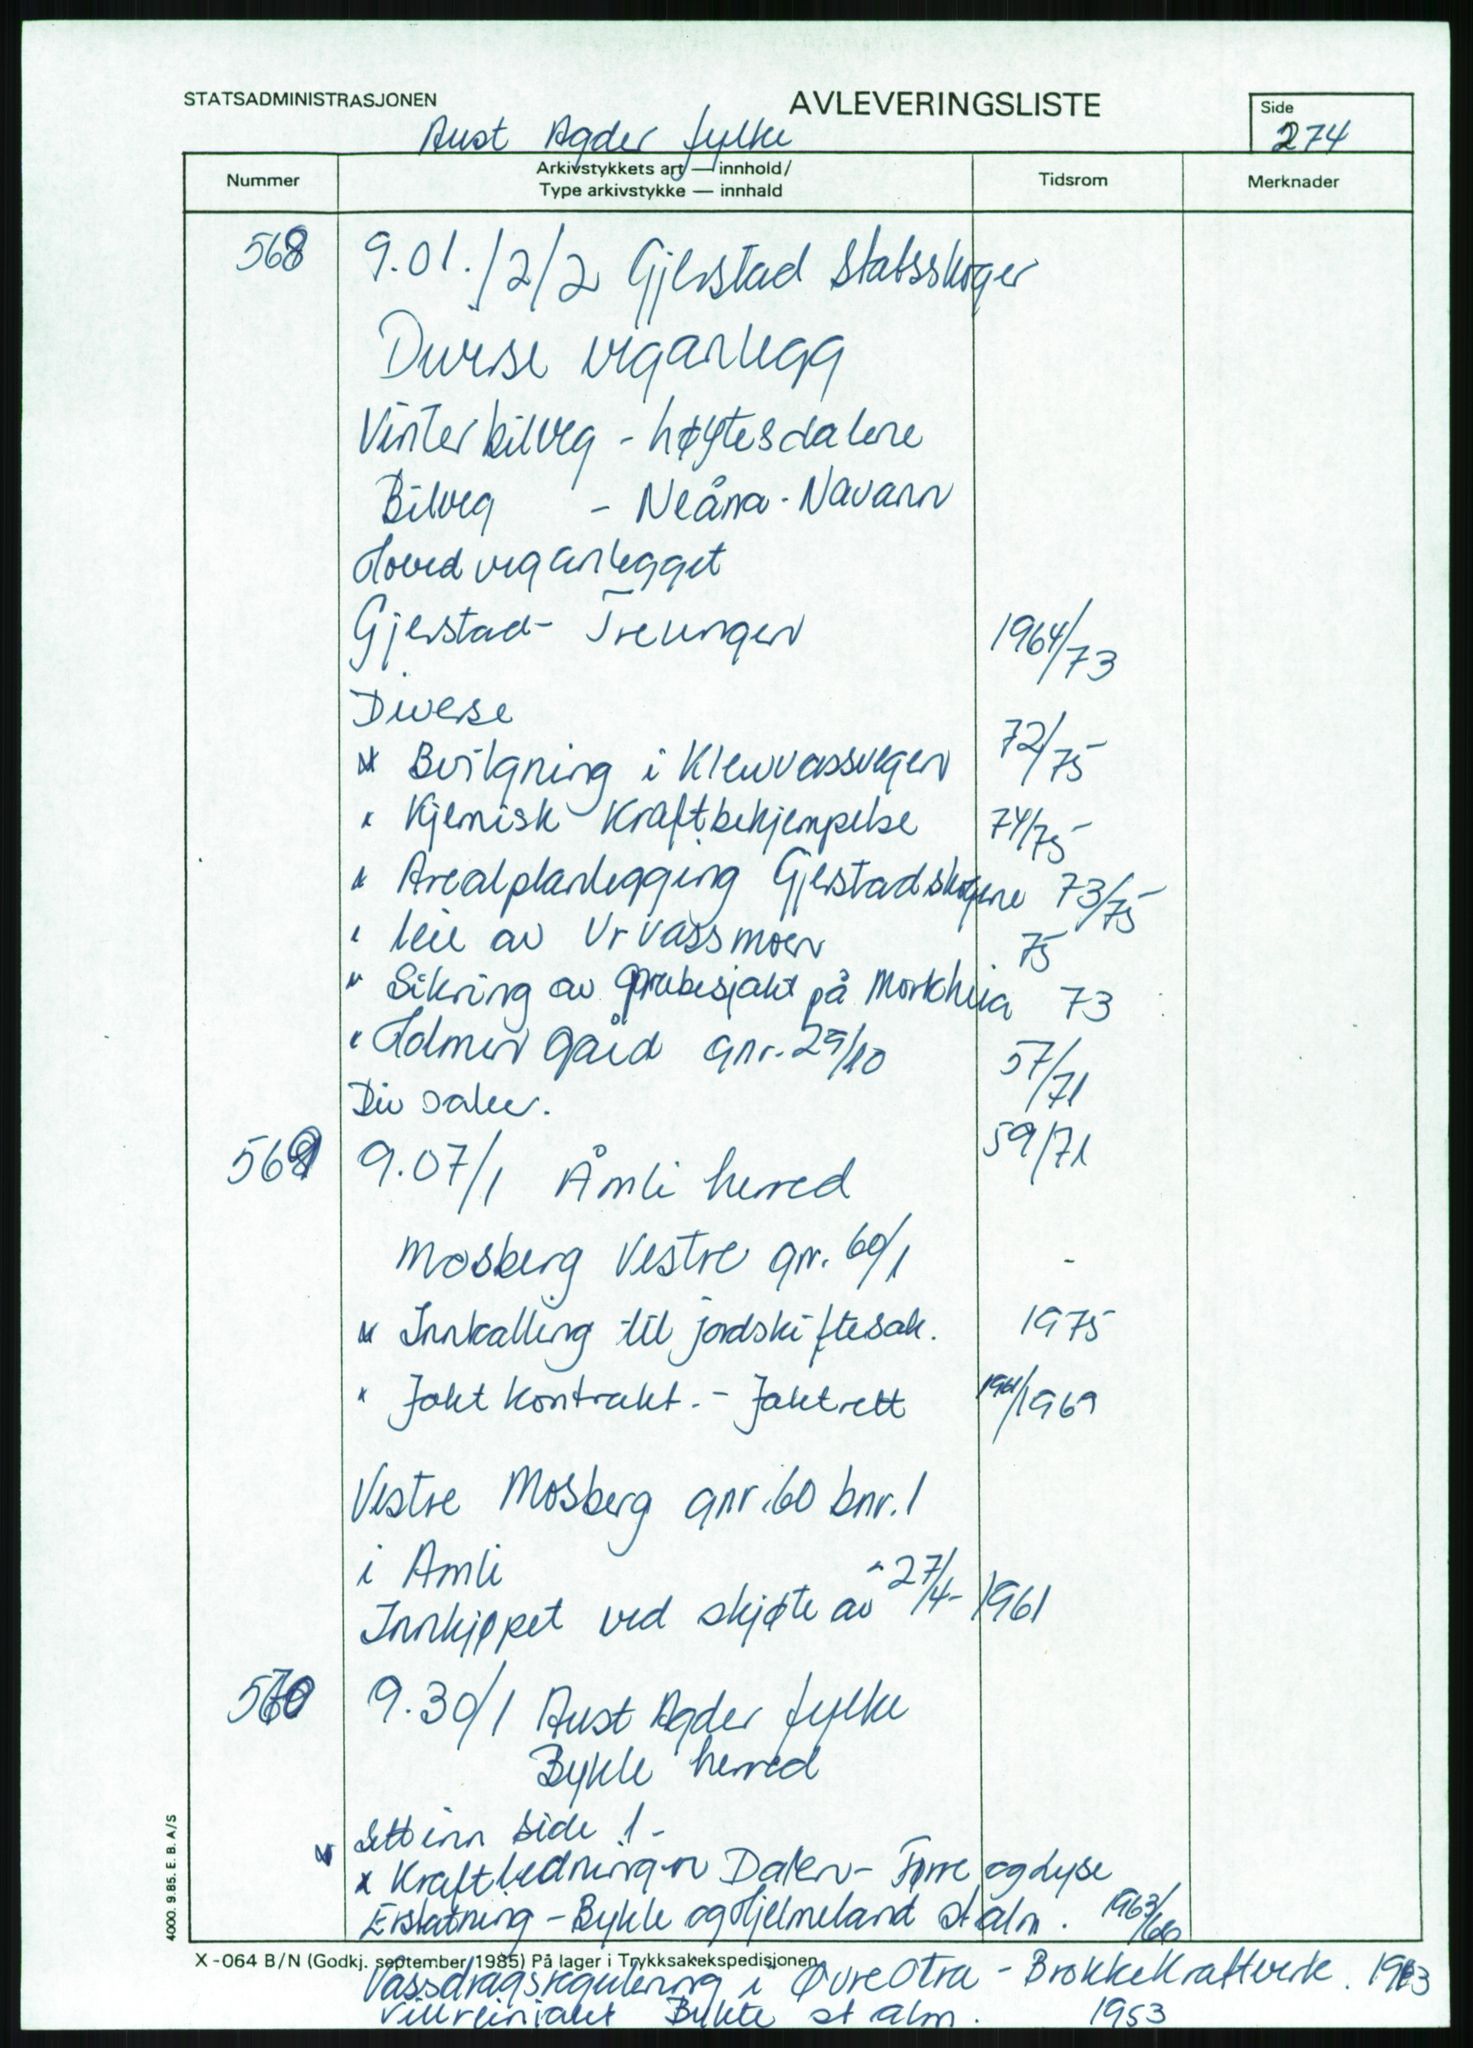 STATSADMINISTRASJONEN
AVLEVERINGSLISTE
Side
274
Aust Agder fylke
Nummer
Arkivstykkets art — innhold/
Type arkivstykke — innhald
Tidsrom
Merknader
568 9.01./2/2 Gjerstad Statsskoger
Diverse veganlegg
Vinterbilveg - høytesdalene
Bilveg - Neåna - Navann
Hovedveganlegget
Gjerstad - Treungen 1964/73
Diverse
* Bevilgning i Klevvassvegen 72/75
" Kjemisk Krattbekjempelse 74/75
" Arealplanlegging Gjerstadskogene 73/75
" leie av Urvassmoen 75
" Sikring av grubesjakt på Morkheia 73
" Holmen gård gnr. 29/10 57/71
Div saker. 59/71
569 9.07/1 Åmli herred
Mosberg Vestre gnr. 60/1 -
" Innkalling til jordskiftesak. 1975
" Jaktkontrakt. - Jaktrett 1961/1969
Vestre Mosberg gnr. 60 bnr. 1
i Åmli
Innkjøpet ved skjøte av 27/4- 1961
570 9.30/1 Aust Agder fylke
Bykle herred
Sett inn side 1 -
x Kraftledningen Dalen - Førre og Lyse
Erstatning - Bykle og Hjelmeland st alm. 1963/66
4000. 9.85. E. B. A/S
X-064 B/N (Godkj. september 1985) På lager i Trykksakekspedisjonen
Vassdragsregulering i Øvre Otra - Brokke Kraftverk. 1963
Villreinjakt Bykle st alm. 1953